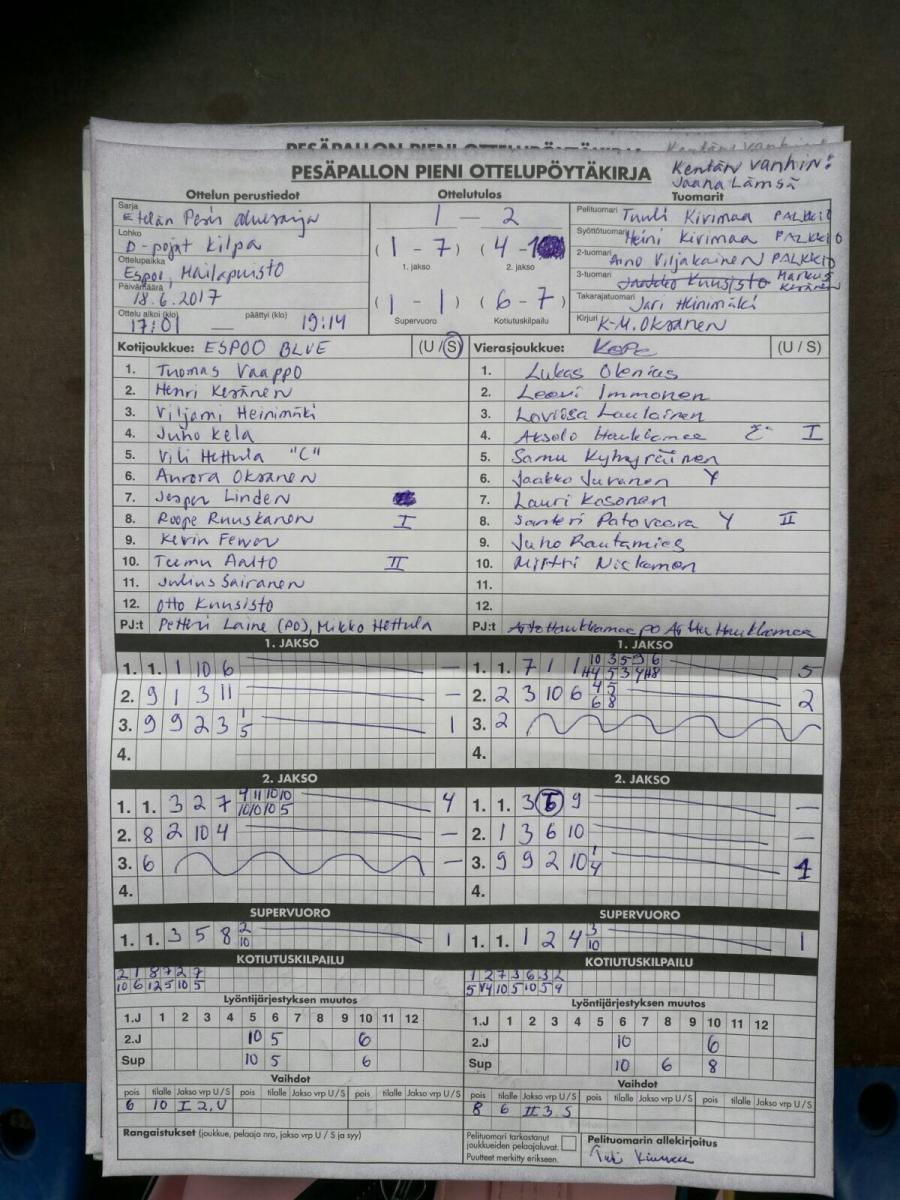 PESÄPALLON PIENI OTTELUPÖYTÄKIRJA
Kentän vanhin:
Jaana Lämsä
Ottelun perustiedot
Ottelutulos
Tuomarit
Sarja
Etelän Pesis aluesarja
Lohko
D-pojat kilpa
Ottelupaikka
Espoo, Hailapuisto
Päivämäärä
18.6.2017
Ottelu alkoi (klo) päättyi (klo)
17:01 — 19:14
1 — 2
(1 - 7) (4 - 1)
1. jakso 2. jakso
(1 - 1) (6 - 7)
Supervuoro Kotiutuskilpailu
Pelituomari Tuuli Kirimaa PALKKIO
Syöttötuomari Heini Kirimaa PALKKIO
2-tuomari Aino Viljakainen PALKKIO
3-tuomari Jaakko Kuusisto Markus Keränen
Takarajatuomari Jari Heinimäki
Kirjuri K-M. Oksanen
Kotijoukkue: ESPOO BLUE (U / S)
1. Tuomas Vaappo
2. Henri Keränen
3. Viljami Heinimäki
4. Juho Kela
5. Vili Hettula "C"
6. Aurora Oksanen
7. Jesper Linden
8. Roope Ruuskanen I
9. Kevin Fewer
10. Teemu Aalto II
11. Julius Sairanen
12. Otto Kuusisto
PJ:t Petteri Laine (PO), Mikko Hettula
Vierasjoukkue: KoPe (U / S)
1. Lukas Olenius
2. Leevi Immonen
3. Loviisa Laulainen
4. Akselo Haukkamaa I
5. Samu Kyhyräinen
6. Jaakko Juvanen Y
7. Lauri Kosonen
8. Santeri Patovaara Y II
9. Juho Rautamies
10. Miftri Niskanen
11.
12.
PJ:t Arto Haukkamaa PO Arttu Haukkamaa
1. JAKSO
1. 1. 1 10 6 —
2. 9 1 3 11 —
3. 9 9 2 3 1/5 1
4.
1. JAKSO
1. 1. 7 1 1 10 3 5 9 6 5
H4 5 3 4 H8
2. 2 3 10 6 4 5 2
6 8
3. 2
4.
2. JAKSO
1. 1. 3 2 7 4 11 10 10 4
10 10 10 5
2. 8 2 10 4 —
3. 6 —
4.
2. JAKSO
1. 1. 3 6 9 —
2. 1 3 6 10 —
3. 9 9 2 10 1/4 1
4.
SUPERVUORO
1. 1. 3 5 8 2/10 1
SUPERVUORO
1. 1. 1 2 4 3/10 1
KOTIUTUSKILPAILU
2 1 8 7 2 7
10 6 12 5 10 5
KOTIUTUSKILPAILU
1 2 7 3 6 3 2
5 4 10 5 10 5 9
Lyöntijärjestyksen muutos
1.J 1 2 3 4 5 6 7 8 9 10 11 12
2.J 10 5 6
Sup 10 5 6
Lyöntijärjestyksen muutos
1.J 1 2 3 4 5 6 7 8 9 10 11 12
2.J 10 6
Sup 10 6 8
Vaihdot
pois tilalle Jakso vrp U / S pois tilalle Jakso vrp U / S pois tilalle Jakso vrp U / S
6 10 I 2. U
Vaihdot
pois tilalle Jakso vrp U / S pois tilalle Jakso vrp U / S pois tilalle Jakso vrp U / S
8 6 II 3 S
Rangaistukset (joukkue, pelaaja nro, jakso vrp U / S ja syy)
Pelituomari tarkastanut
joukkueiden pelaajaluvat.
Puutteet merkitty erikseen.
Pelituomarin allekirjoitus